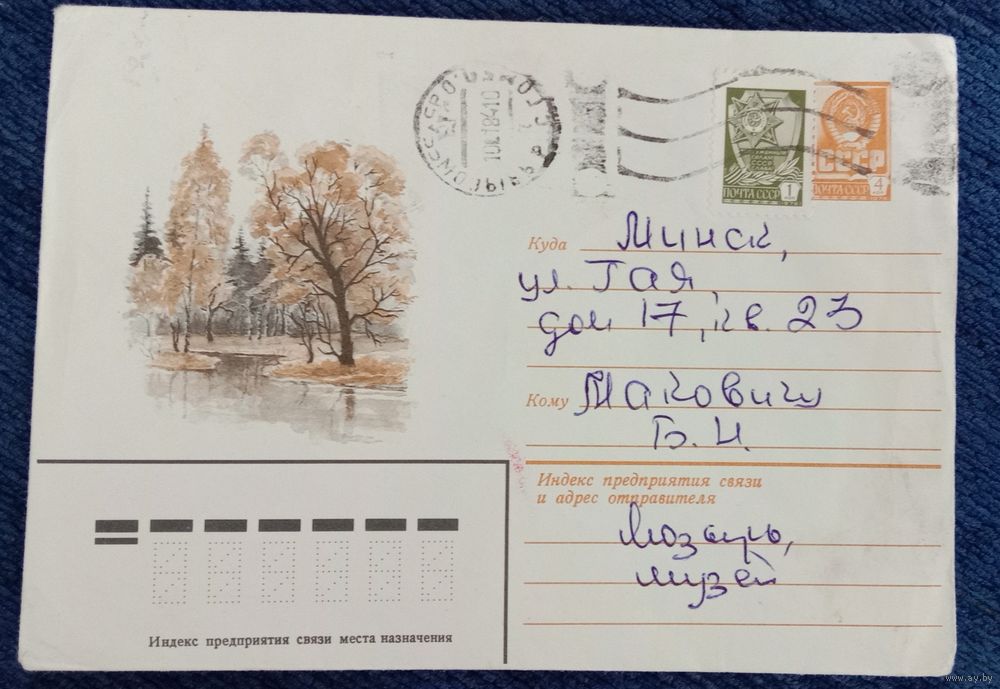 ПОЧТА СССР 1
СССР
ПОЧТА СССР 4
Куда Минск,
ул. Гая,
дом 17, кв. 23
Кому Маковичу
Б. И.
Индекс предприятия связи
и адрес отправителя
Мозырь,
музей
Индекс предприятия связи места назначения
www.ay.by